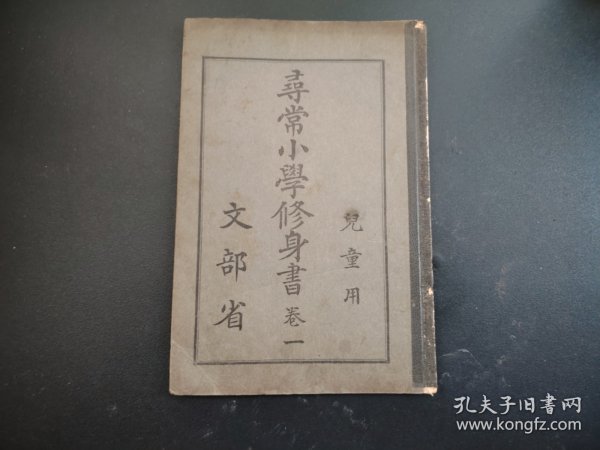 兒童用
尋常小學修身書 卷一
文部省
孔夫子旧书网
www.kongfz.com